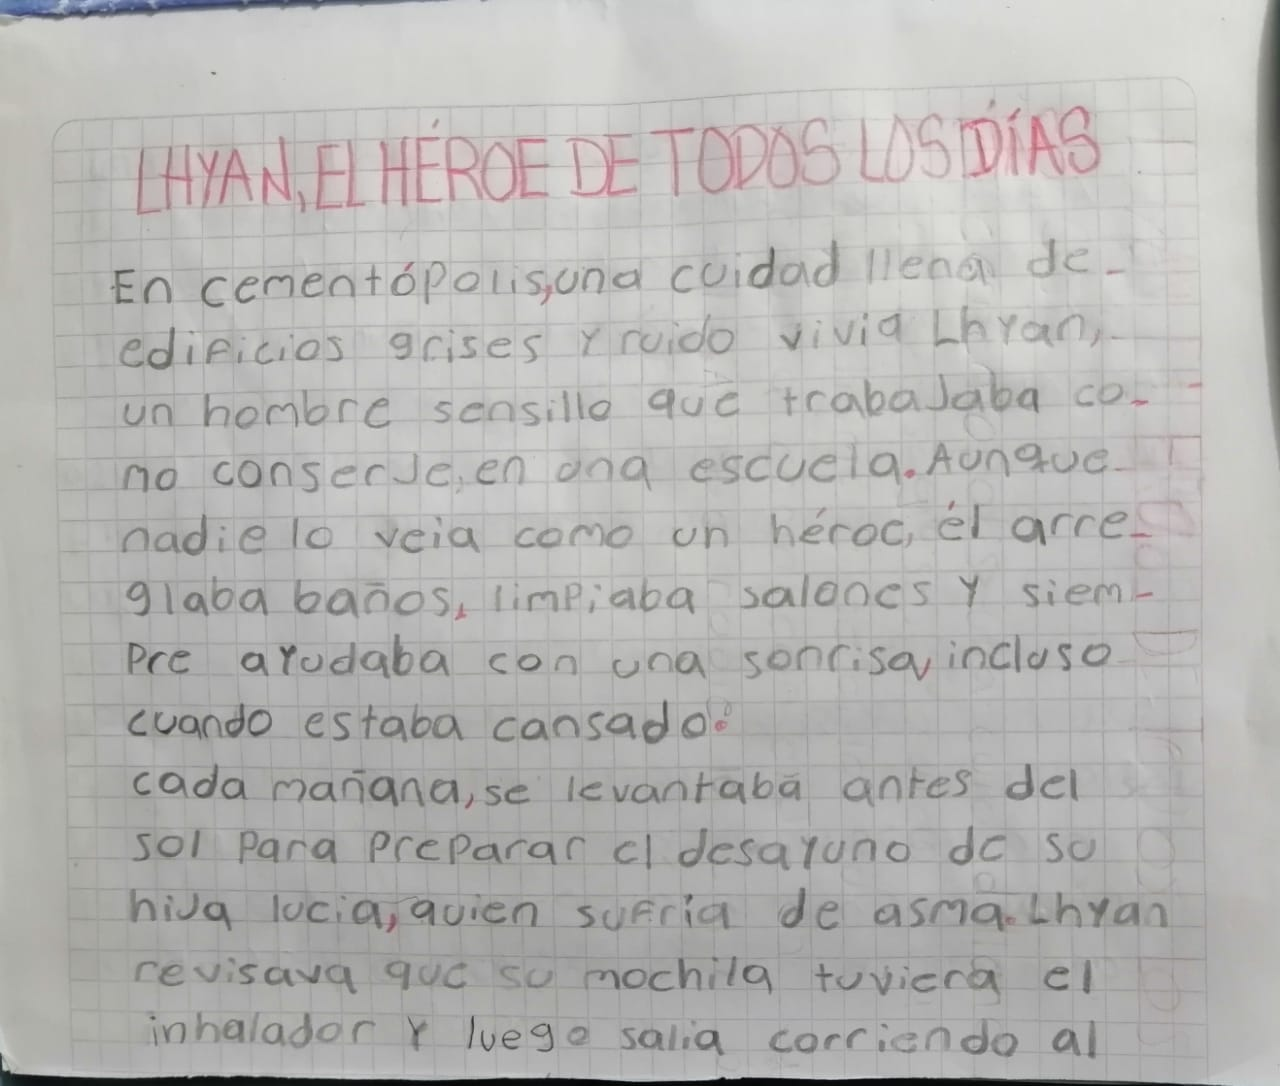 LHYAN, EL HÉROE DE TODOS LOS DÍAS
En cementópolis, una cuidad llena de-
edificios grises y ruido vivia Lhyan,
un hombre sensillo que trabajaba co-
mo conserje, en una escuela. Aunque
nadie lo veia como un héroe, él arre-
glaba baños, limpiaba salones y siem-
pre ayudaba con una sonrisa, incluso
cuando estaba cansado.
cada mañana, se levantaba antes del
sol para preparar el desayuno de su
hija lucia, quien sufria de asma. Lhyan
revisava que su mochila tuviera el
inhalador y luego salia corriendo al